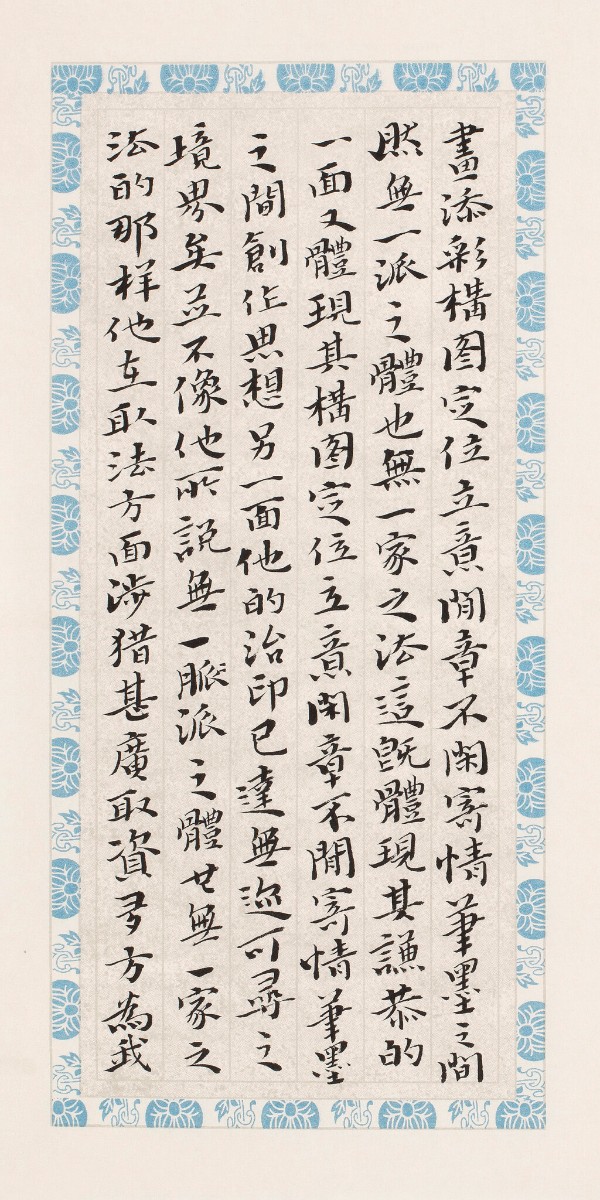 畫添彩構图定位立意閒章不閑寄情筆墨之間
然無一派之體也無一家之法這既體現其謙恭的
一面又體現其構图定位立意閑章不閒寄情筆墨
之間創作思想另一面他的治印已達無迹可尋之
境界矣並不像他所說無一脈派之體也無一家之
法的那样他在取法方面涉猎甚廣取資多方為我